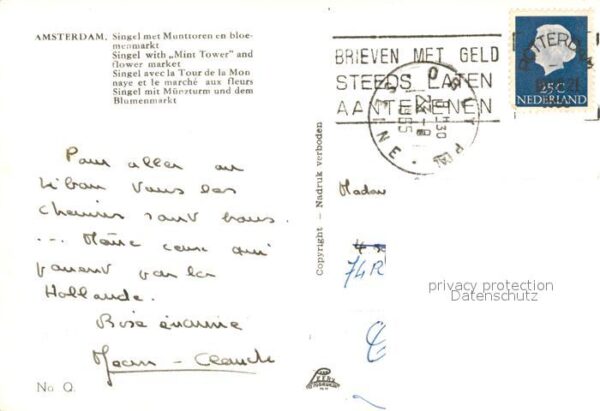 AMSTERDAM, Singel met Munttoren en bloe-
menmarkt
Singel with „Mint Tower" and
flower market
Singel avec la Tour de la Mon
naye et le marché aux fleurs
Singel mit Münzturm und dem
Blumenmarkt
BRIEVEN MET GELD
STEEDS LATEN
AANTEKENEN
ROTTERDAM
25C
NEDERLAND
Pour aller au
Liban tous les
chemins sont bons.
... Même ceux qui
passent par la
Hollande.
Bise énorme
Jean-Claude
No Q.
Copyright - Nadruk verboden
Madam
74 R
privacy protection
Datenschutz